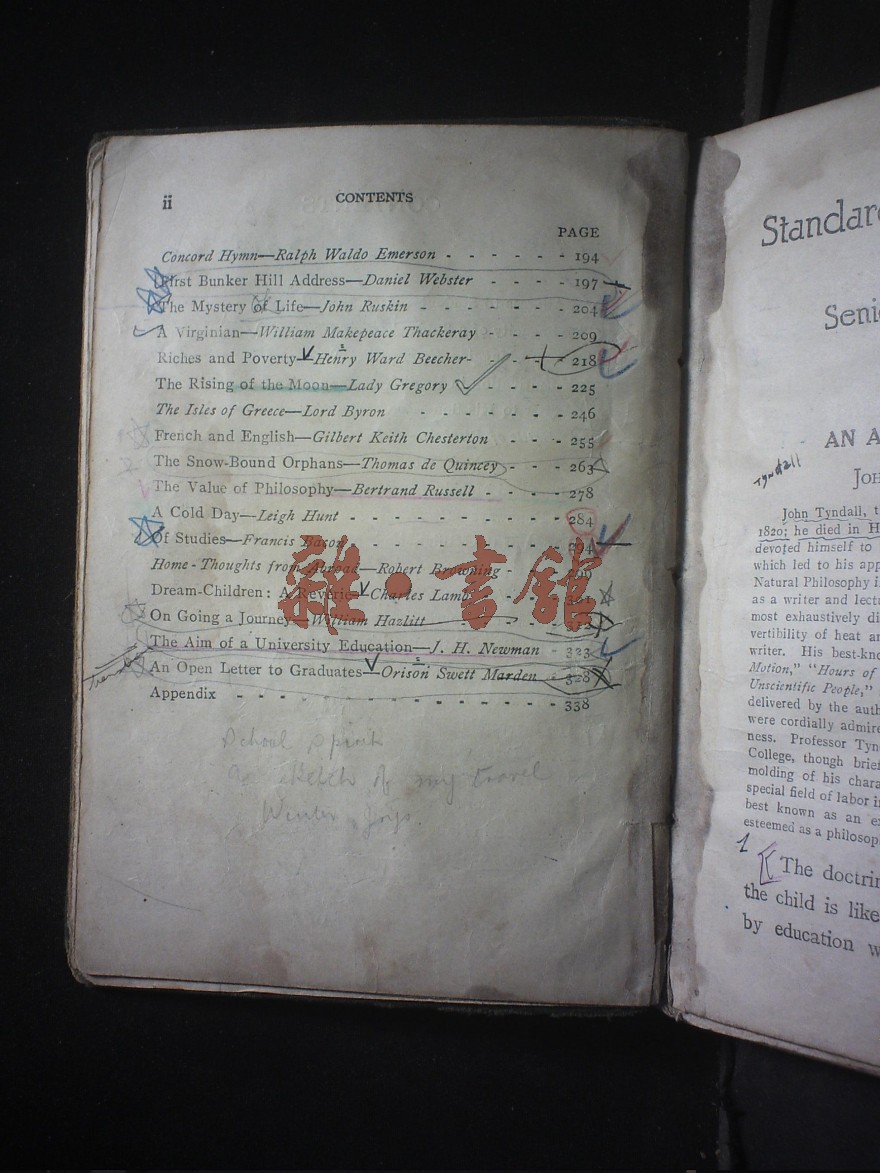 ii
CONTENTS
PAGE
Concord Hymn—Ralph Waldo Emerson - - - - - - 194
First Bunker Hill Address—Daniel Webster - - - - 197
The Mystery of Life—John Ruskin - - - - - - - 204
A Virginian—William Makepeace Thackeray - - - - 209
Riches and Poverty—Henry Ward Beecher- - - - - 218
The Rising of the Moon—Lady Gregory - - - - 225
The Isles of Greece—Lord Byron - - - - - - - 246
French and English—Gilbert Keith Chesterton - - - 255
The Snow-Bound Orphans—Thomas de Quincey - - - - 263
The Value of Philosophy—Bertrand Russell - - - - 278
A Cold Day—Leigh Hunt - - - - - - - - - 284
Of Studies—Francis Bacon - - - - - - - 294
Home-Thoughts from Abroad—Robert Browning -
Dream-Children: A Reverie—Charles Lamb
On Going a Journey—William Hazlitt
The Aim of a University Education—J. H. Newman - 323
An Open Letter to Graduates—Orison Swett Marden - 328
Appendix - - - - - - - - - - - - 338
School spirit
a sketch of my travel
Winter joys
雜·書館
Standard
Senio
AN A
JOH
Tyndall
John Tyndall, t
1820; he died in H
devoted himself to
which led to his app
Natural Philosophy i
as a writer and lectu
most exhaustively di
vertibility of heat an
writer. His best-kno
Motion," "Hours of
Unscientific People,"
delivered by the auth
were cordially admire
ness. Professor Tyn
College, though brief
molding of his chara
special field of labor i
best known as an ex
esteemed as a philosop
1
The doctrin
the child is like
by education w